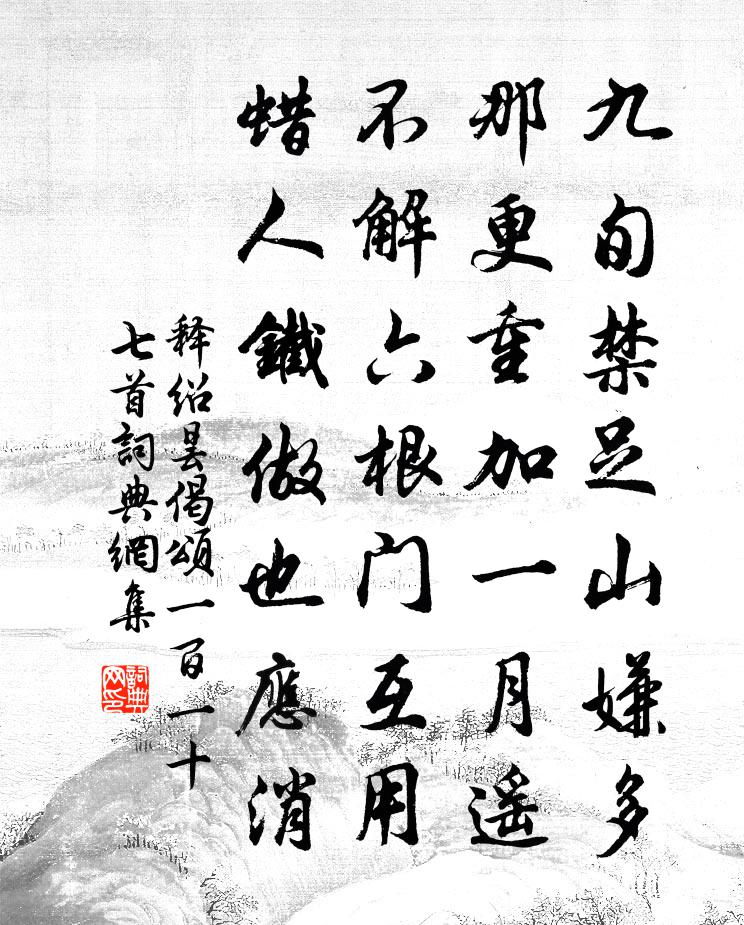 九旬禁足山嫌多
那更重加一月遥
不解六根门互用
蜡人鐵做也應消
释绍昙偈頌一百一十
七首詞典網集
詞典网印